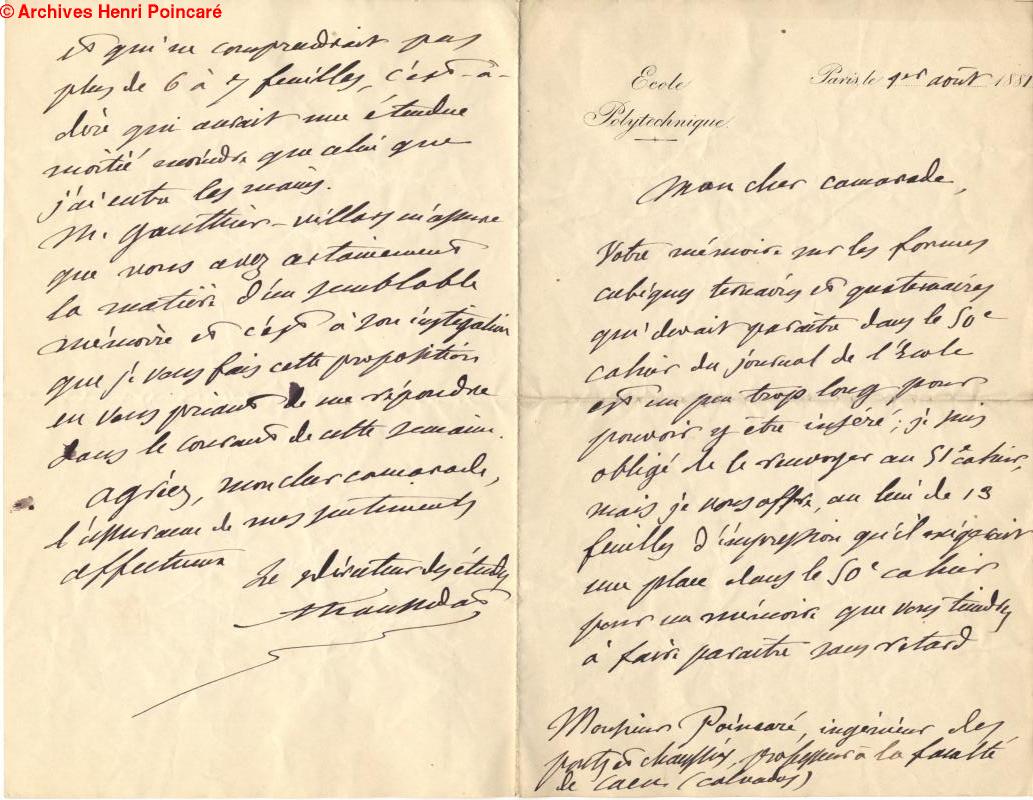 © Archives Henri Poincaré
Ecole
Polytechnique.
Paris, le 1er août 1881
Mon cher camarade,
Votre mémoire sur les formes
cubiques ternaires et quaternaires
qui devait paraître dans le 50e
cahier du journal de l'École
est un peu trop long pour
pouvoir y être inséré ; je suis
obligé de le renvoyer au 51e cahier,
mais je vous offre, au lieu de 13
feuilles d'impression qu'il exigerait
une place dans le 50e cahier
pour un mémoire que vous tiendrez
à faire paraître sans retard
Monsieur Poincaré, ingénieur des
ponts et chaussées, professeur à la faculté
de Caen (Calvados)
et qui ne comprendrait pas
plus de 6 à 7 feuilles, c'est-à-
dire qui aurait une étendue
moitié moindre que celui que
j'ai entre les mains.
M. Gauthier-Villars m'assure
que vous avez certainement
la matière d'un semblable
mémoire et c'est à son instigation
que je vous fais cette proposition
en vous priant de me répondre
dans le courant de cette semaine.
Agréez, mon cher camarade,
l'assurance de mes sentiments
affectueux
Le directeur des études